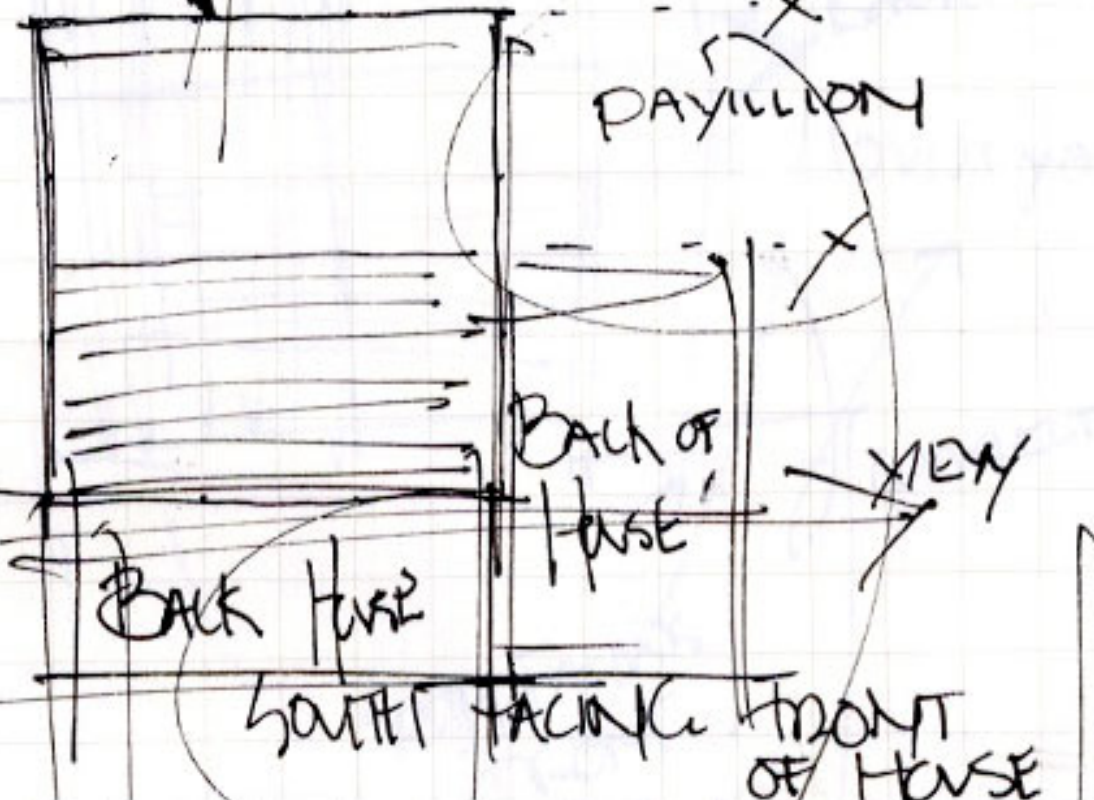 PAVILLION
BACK OF
HOUSE
VIEW
BACK HOUSE
SOUTH FACING FRONT
OF HOUSE